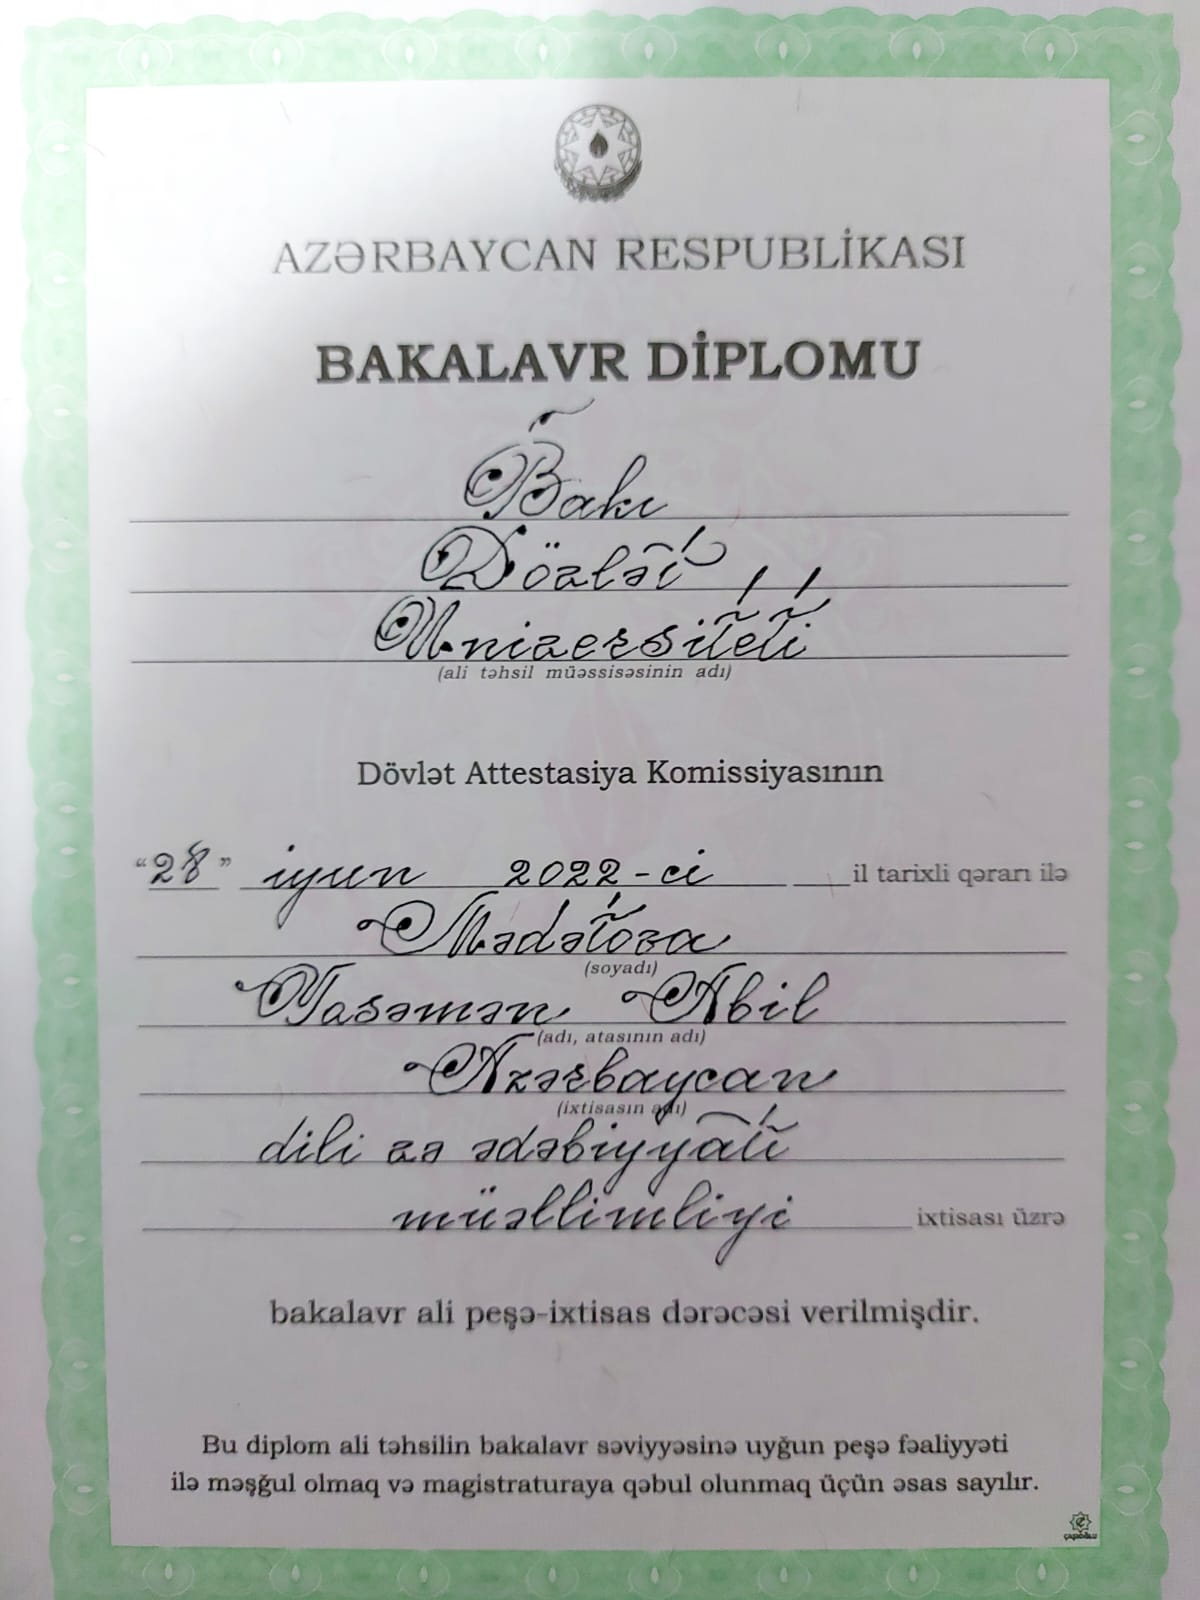 AZƏRBAYCAN RESPUBLİKASI
BAKALAVR DİPLOMU
Bakı
Dövlət
Universiteti
(ali təhsil müəssisəsinin adı)
Dövlət Attestasiya Komissiyasının
“28” iyun 2022-ci il tarixli qərarı ilə
Mədətova
(soyadı)
Yasəmən Abil
(adı, atasının adı)
Azərbaycan
(ixtisasın adı)
dili və ədəbiyyatı
müəllimliyi ixtisası üzrə
bakalavr ali peşə-ixtisas dərəcəsi verilmişdir.
Bu diplom ali təhsilin bakalavr səviyyəsinə uyğun peşə fəaliyyəti
ilə məşğul olmaq və magistraturaya qəbul olunmaq üçün əsas sayılır.